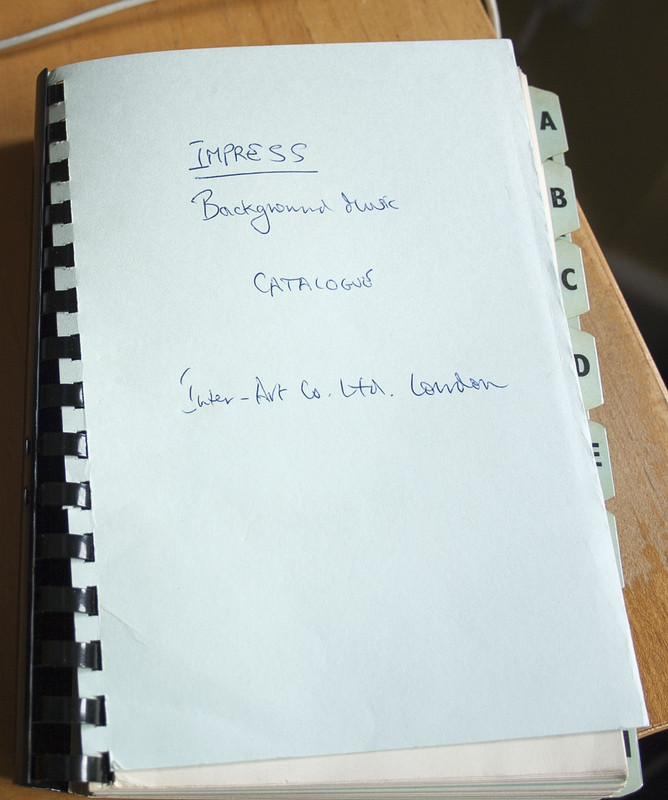 IMPRESS
Background Music
CATALOGUE
Inter-Art Co. Ltd. London
A
B
C
D
E